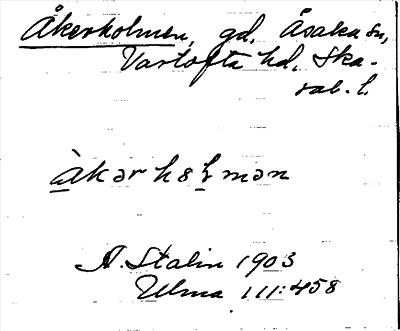 Åkerholmen, gd, Åsaka sn,
Vartofta hd, Ska-
rab. l.
àkər hɷl̥mən
A. Stalin 1903
Ulma 111:458